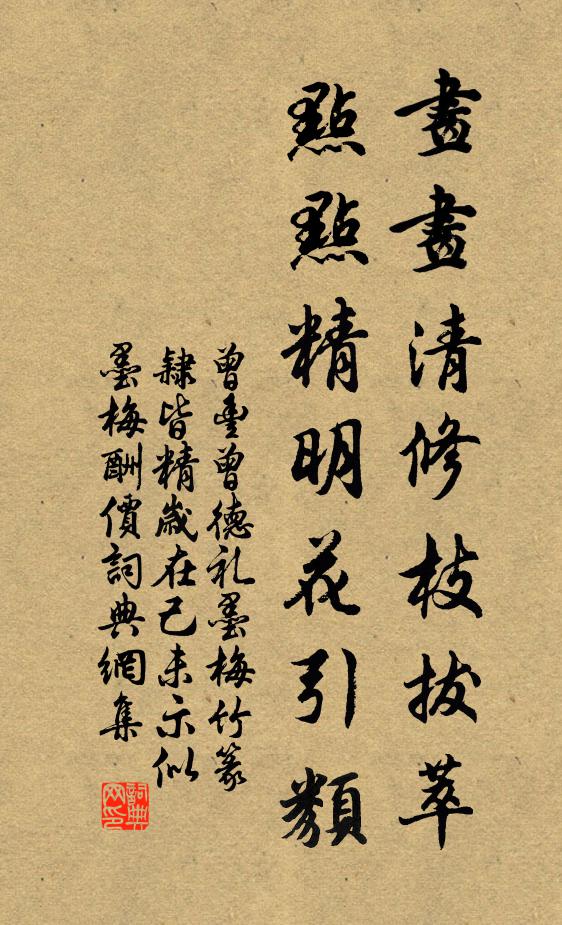 畫畫清修枝拔萃
點點精明花引類
曾豐曾德礼墨梅竹篆
隸皆精歲在己未示似
墨梅酬價詞典網集
詞典网印